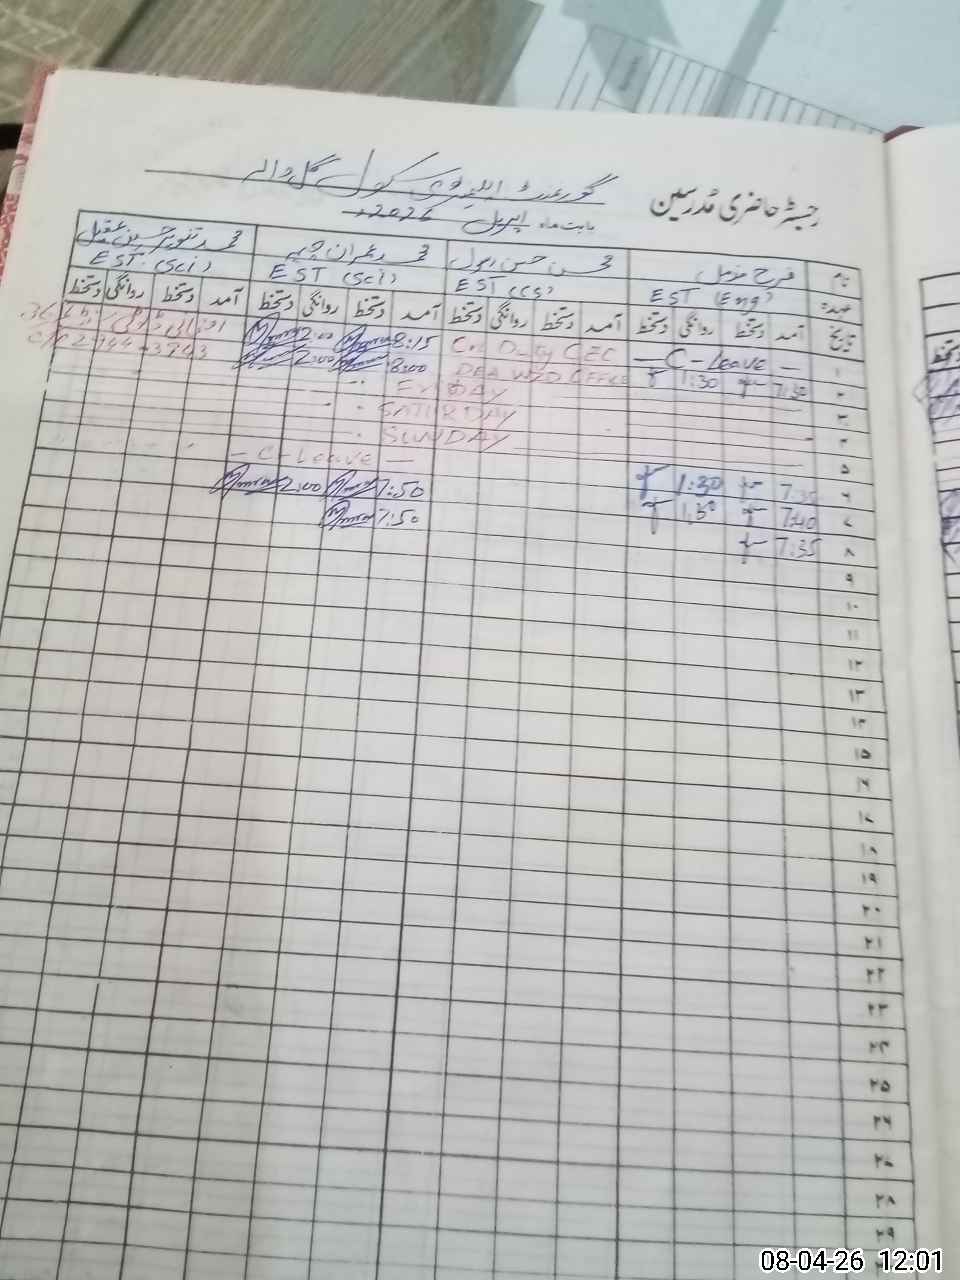 رجسٹر حاضری مُدرسین گورنمنٹ ایلیمنٹری سکول گل والہ
بابت ماہ اپریل 2026ء
نام فرح مزمل محسن حسن رسول محمد عمران چیمہ محمد تنویر حسین عقیل
عہدہ EST (Eng) EST (CS) EST (Sci) EST. (Sci)
تاریخ آمد دستخط روانگی دستخط آمد دستخط روانگی دستخط آمد دستخط روانگی دستخط آمد دستخط روانگی دستخط
۱ — C - Leave — On Duty CEC 8:15 2:00
۲ 7:30 1:30 DEA Office 8:00 2:00
۳ FRIDAY
۴ SATURDAY
۵ SUNDAY
۶ 7:35 1:30 — C - Leave —
۷ 7:40 1:30 7:50 2:00
۸ 7:35 7:50
۹
۱۰
۱۱
۱۲
۱۳
۱۴
۱۵
۱۶
۱۷
۱۸
۱۹
۲۰
۲۱
۲۲
۲۳
۲۴
۲۵
۲۶
۲۷
۲۸
۲۹
08-04-26 12:01